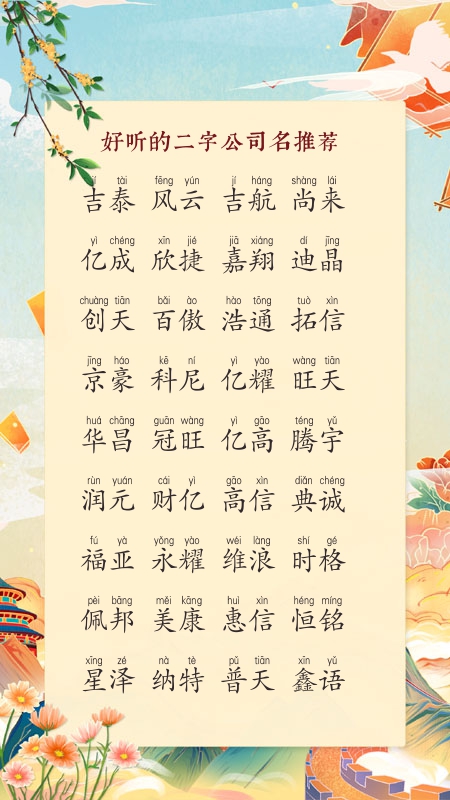 好听的二字公司名推荐
jí tài fēng yún jí háng shàng lái
吉泰 风云 吉航 尚来
yì chéng xīn jié jiā xiáng dí jīng
亿成 欣捷 嘉翔 迪晶
chuàng tiān bǎi ào hào tōng tuò xìn
创天 百傲 浩通 拓信
jīng háo kē ní yì yào wàng tiān
京豪 科尼 亿耀 旺天
huá chāng guān wàng yì gāo téng yǔ
华昌 冠旺 亿高 腾宇
rùn yuán cái yì gāo xìn diǎn chéng
润元 财亿 高信 典诚
fú yà yǒng yào wéi làng shí gé
福亚 永耀 维浪 时格
pèi bāng měi kāng huì xìn héng míng
佩邦 美康 惠信 恒铭
xīng zé nà tè pǔ tiān xīn yǔ
星泽 纳特 普天 鑫语